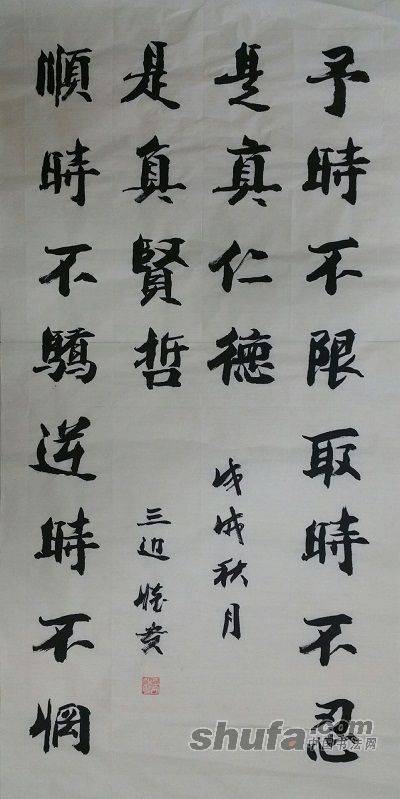 予時不限取時不忍
是真仁德
順時不驕逆時不惘
是真賢哲
戊戌秋月
shufa.com
中国书法网